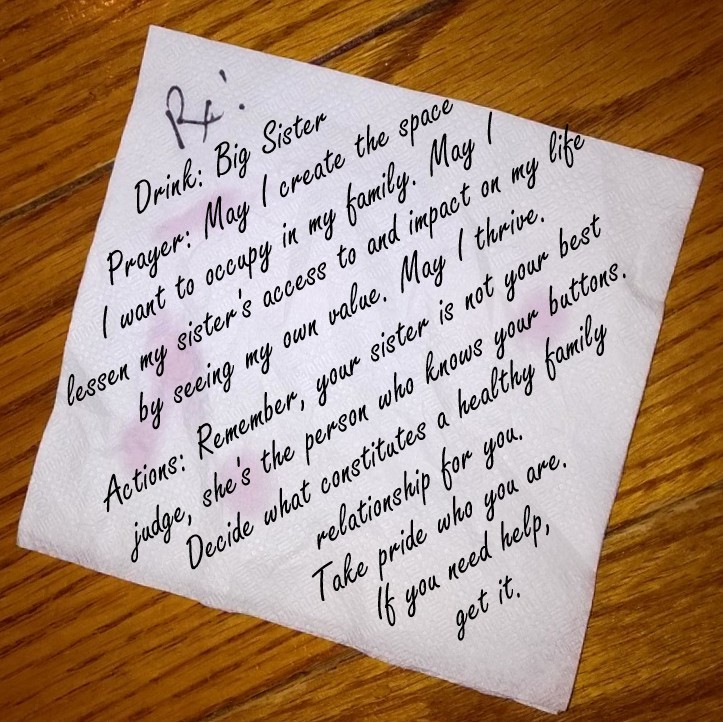 Rx:
Drink: Big Sister
Prayer: May I create the space
I want to occupy in my family. May I
lessen my sister's access to and impact on my life
by seeing my own value. May I thrive.
Actions: Remember, your sister is not your best
judge, she's the person who knows your buttons.
Decide what constitutes a healthy family
relationship for you.
Take pride who you are.
If you need help,
get it.